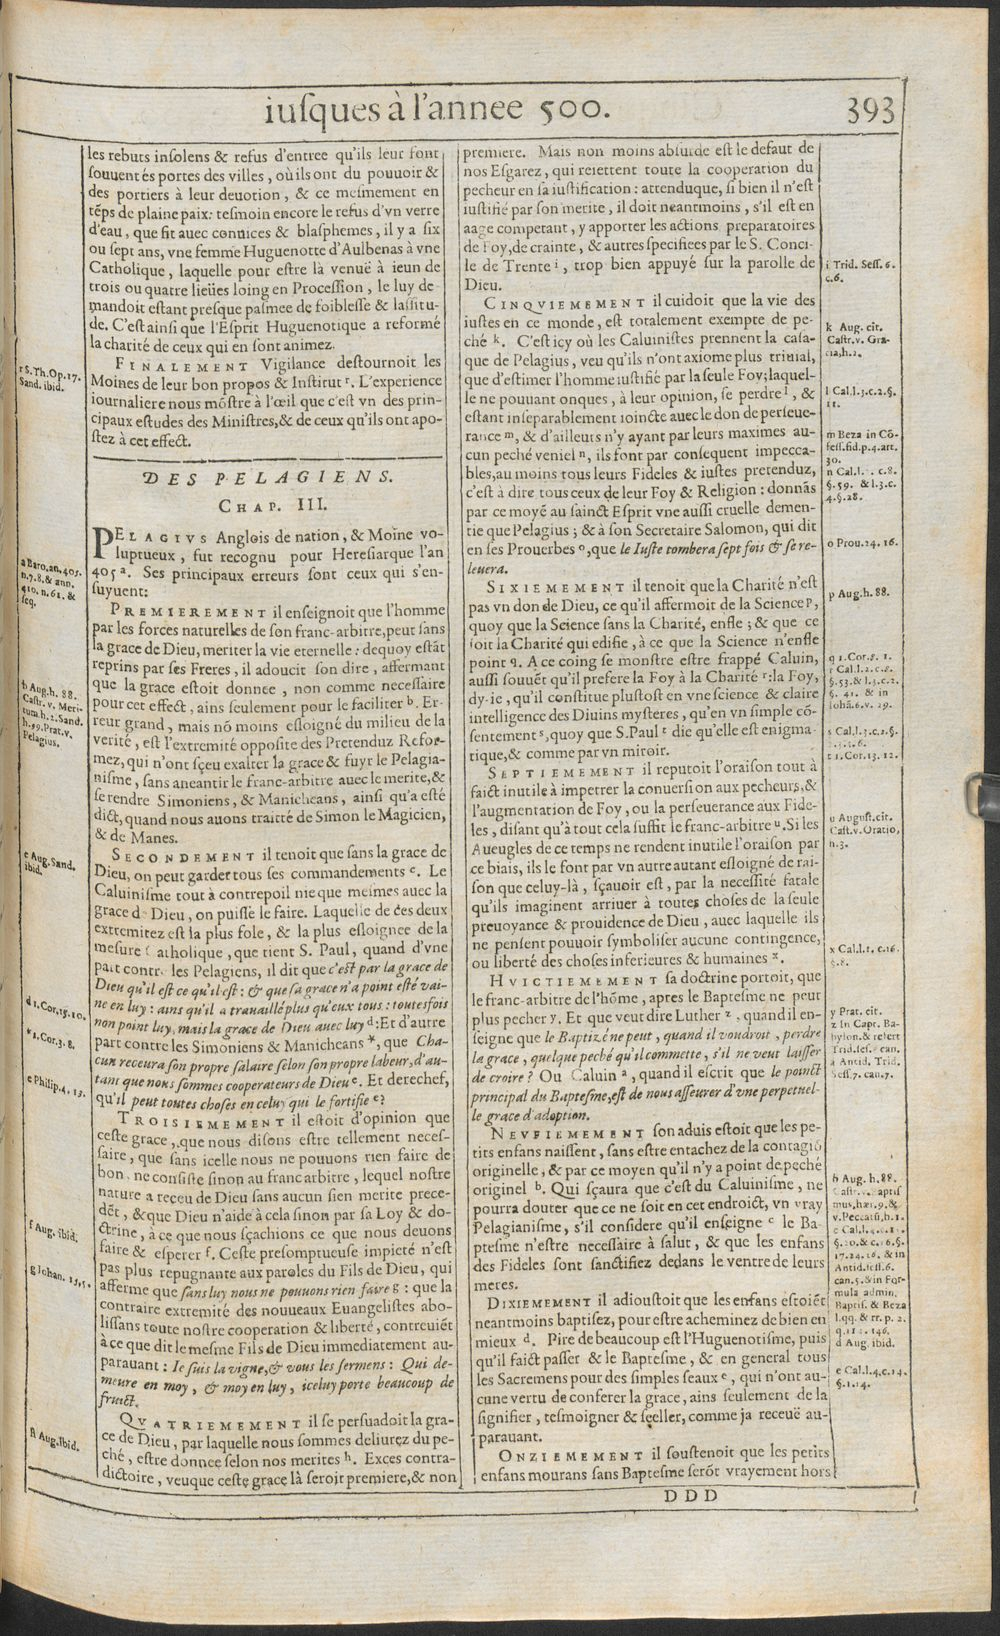 iuſques à l'annee 500.
393
les rebuts inſolens & refus d'entree qu'ils leur font
ſouuent és portes des villes, où ils ont du pouuoir &
des portiers à leur deuotion, & ce meſmement en
tẽps de plaine paix: teſmoin encore le refus d'vn verre
d'eau, que fit auec conuices & blaſphemes, il y a ſix
ou ſept ans, vne femme Huguenotte d'Aulbenas à vne
Catholique, laquelle pour eſtre là venuë à ieun de
trois ou quatre lieües loing en Proceſſion, le luy de-
mandoit eſtant preſque paſmee de foibleſſe & laſſitu-
de. C'eſt ainſi que l'Eſprit Huguenotique a reformé
la charité de ceux qui en ſont animez.
FINALEMENT Vigilance deſtournoit les
Moines de leur bon propos & Inſtitut r. L'experience
iournaliere nous mõſtre à l'œil que c'eſt vn des prin-
cipaux eſtudes des Miniſtres, & de ceux qu'ils ont apo-
ſtez à cet effect.
r S. Th. Op. 17.
Sand. ibid.
DES PELAGIENS.
CHAP. III.
PELAGIVS Anglois de nation, & Moine vo-
luptueux, fut recognu pour Hereſiarque l'an
405 a. Ses principaux erreurs ſont ceux qui s'en-
ſuyuent:
a Baro. an. 405.
n. 7. 8. & ann.
410. n. 61. &
ſeq.
PREMIEREMENT il enſeignoit que l'homme
par les forces naturelles de ſon franc-arbitre, peut ſans
la grace de Dieu, meriter la vie eternelle: dequoy eſtãt
reprins par ſes Freres, il adoucit ſon dire, affermant
que la grace eſtoit donnee, non comme neceſſaire
pour cet effect, ains ſeulement pour le faciliter b. Er-
reur grand, mais nõ moins eſloigné du milieu de la
verité, eſt l'extremité oppoſite des Pretenduz Refor-
mez, qui n'ont ſçeu exalter la grace & fuyr le Pelagia-
niſme, ſans aneantir le franc-arbitre auec le merite, &
ſe rendre Simoniens, & Manicheans, ainſi qu'a eſté
dict, quand nous auons traitté de Simon le Magicien,
& de Manes.
b Aug. h. 88.
Caſtr. v. Meri-
tum. h. 2. Sand.
h. 89. Prat. v.
Pelagius.
SECONDEMENT il tenoit que ſans la grace de
Dieu, on peut garder tous ſes commandements c. Le
Caluiniſme tout à contrepoil nie que meſmes auec la
grace de Dieu, on puiſſe le faire. Laquelle de ces deux
extremitez eſt la plus fole, & la plus eſloignee de la
meſure Catholique, que tient S. Paul, quand d'vne
part contre les Pelagiens, il dit que c'eſt par la grace de
Dieu qu'il eſt ce qu'il eſt: & que ſa grace n'a point eſté vai-
ne en luy: ains qu'il a trauaillé plus qu'eux tous: toutesfois
non point luy, mais la grace de Dieu auec luy d: Et d'autre
part contre les Simoniens & Manicheans *, que Cha-
cun receura ſon propre ſalaire ſelon ſon propre labeur, d'au-
tant que nous ſommes cooperateurs de Dieu e. Et derechef,
qu'il peut toutes choſes en celuy qui le fortifie e?
c Aug. Sand.
ibid.
d 1. Cor. 15. 10.
* 1. Cor. 3. 8.
e Philip. 4. 13.
TROISIEMEMENT il eſtoit d'opinion que
ceſte grace, que nous diſons eſtre tellement neceſ-
ſaire, que ſans icelle nous ne pouuons rien faire de
bon, ne conſiſte ſinon au franc arbitre, lequel noſtre
nature a receu de Dieu ſans aucun ſien merite prece-
dẽt, & que Dieu n'aide à cela ſinon par ſa Loy & do-
ctrine, à ce que nous ſçachions ce que nous deuons
faire & eſperer f. Ceſte preſomptueuſe impieté n'eſt
pas plus repugnante aux paroles du Fils de Dieu, qui
afferme que ſans luy nous ne pouuons rien faire g: que la
contraire extremité des nouueaux Euangeliſtes abo-
liſſans toute noſtre cooperation & liberté, contreuiẽt
à ce que dit le meſme Fils de Dieu immediatement au-
parauant: Ie ſuis la vigne, & vous les ſermens: Qui de-
meure en moy, & moy en luy, iceluy porte beaucoup de
fruict.
f Aug. ibid.
g Iohan. 15. 5.
QVATRIEMEMENT il ſe perſuadoit la gra-
ce de Dieu, par laquelle nous ſommes deliurez du pe-
ché, eſtre donnee ſelon nos merites h. Exces contra-
dictoire, veu que ceſte grace là ſeroit premiere, & non
h Aug. ibid.
premiere. Mais non moins abſurde eſt le defaut de
nos Eſgarez, qui reiettent toute la cooperation du
pecheur en ſa iuſtification: attendu que, ſi bien il n'eſt
iuſtifié par ſon merite, il doit neantmoins, s'il eſt en
aage competant, y apporter les actions preparatoires
de Foy, de crainte, & autres ſpecifiees par le S. Conci-
le de Trente i, trop bien appuyé ſur la parolle de
Dieu.
i Trid. Seſſ. 6.
c. 6.
CINQVIEMEMENT il cuidoit que la vie des
iuſtes en ce monde, eſt totalement exempte de pe-
ché k. C'eſt icy où les Caluiniſtes prennent la caſa-
que de Pelagius, veu qu'ils n'ont axiome plus triuial,
que d'eſtimer l'homme iuſtifié par la ſeule Foy; laquel-
le ne pouuant onques, à leur opinion, ſe perdre l, &
eſtant inſeparablement iointe auec le don de perſeue-
rance m, & d'ailleurs n'y ayant par leurs maximes au-
cun peché veniel n, ils font par conſequent impecca-
bles, au moins tous leurs Fideles & iuſtes pretenduz,
c'eſt à dire tous ceux de leur Foy & Religion: donnãs
par ce moyẽ au ſainct Eſprit vne auſſi cruelle demen-
tie que Pelagius; & à ſon Secretaire Salomon, qui dit
en ſes Prouerbes o, que le Iuſte tombera ſept fois & ſe re-
leuera.
k Aug. cit.
Caſtr. v. Gra-
tia, h. 2.
l Cal. l. 3. c. 2. §.
11.
m Beza in Cõ-
feſſ. fid. p. 4. art.
30.
n Cal. l. . c. 8.
§. 59. & l. 3. c.
4. §. 28.
o Prou. 24. 16.
SIXIEMEMENT il tenoit que la Charité n'eſt
pas vn don de Dieu, ce qu'il affermoit de la Science p,
quoy que la Science ſans la Charité, enfle; & que ce
ſoit la Charité qui edifie, à ce que la Science n'enfle
point q. A ce coing ſe monſtre eſtre frappé Caluin,
auſſi ſouuẽt qu'il prefere la Foy à la Charité r: la Foy,
dy-ie, qu'il conſtitue pluſtoſt en vne ſcience & claire
intelligence des Diuins myſteres, qu'en vn ſimple cõ-
ſentement s, quoy que S. Paul t die qu'elle eſt enigma-
tique, & comme par vn miroir.
p Aug. h. 88.
q 1. Cor. 8. 1.
r Cal. l. 2. c. 8.
§. 53. & l. 3. c. 2.
§. 41. & in
Iohã. 6. v. 29.
s Cal. l. 3. c. 2. §.
t 1. Cor. 13. 12.
SEPTIEMEMENT il reputoit l'oraiſon tout à
faict inutile à impetrer la conuerſion aux pecheurs, &
l'augmentation de Foy, ou la perſeuerance aux Fide-
les, diſant qu'à tout cela ſuffit le franc-arbitre u. Si les
Aueugles de ce temps ne rendent inutile l'oraiſon par
ce biais, ils le font par vn autre autant eſloigné de rai-
ſon que celuy-là, ſçauoir eſt, par la neceſſité fatale
qu'ils imaginent arriuer à toutes choſes de la ſeule
preuoyance & prouidence de Dieu, auec laquelle ils
ne penſent pouuoir ſymboliſer aucune contingence,
ou liberté des choſes inferieures & humaines x.
u Auguſt. cit.
Caſt. v. Oratio,
n. 3.
x Cal. l. 1. c. 16.
§. 8.
HVICTIEMEMENT ſa doctrine portoit, que
le franc-arbitre de l'hõme, apres le Bapteſme ne peut
plus pecher y. Et que veut dire Luther z, quand il en-
ſeigne que le Baptizé ne peut, quand il voudroit, perdre
la grace, quelque peché qu'il commette, s'il ne veut laiſſer
de croire? Ou Caluin a, quand il eſcrit que le poinct
principal du Bapteſme, eſt de nous aſſeurer d'vne perpetuel-
le grace d'adoption.
y Prat. cit.
z In Capt. Ba-
bylon. & refert
Trid. ſeſ. can.
a Antid. Trid.
Seſſ. 7. can. 7.
NEVFIEMEMENT ſon aduis eſtoit que les pe-
tits enfans naiſſent, ſans eſtre entachez de la contagiõ
originelle, & par ce moyen qu'il n'y a point de peché
originel b. Qui ſçaura que c'eſt du Caluiniſme, ne
pourra douter que ce ſoit en cet endroict, vn vray
Pelagianiſme, s'il conſidere qu'il enſeigne c le Ba-
pteſme n'eſtre neceſſaire à ſalut, & que les enfans
des Fideles ſont ſanctifiez dedans le ventre de leurs
meres.
b Aug. h. 88.
Caſtr. v. Baptiſ
mus, hær. 9. &
v. Peccatũ, h. 1.
c Cal. l. 4.
§. 20. & c. 16. §.
17. 24. 26. & in
Antid. ſeſſ. 6.
can. 5. & in For-
mula admin.
Baptiſ. & Beza
l. qq. & rr. p. 2.
q. 146.
DIXIEMEMENT il adiouſtoit que les enfans eſtoiẽt
neantmoins baptiſez, pour eſtre acheminez de bien en
mieux d. Pire de beaucoup eſt l'Huguenotiſme, puis
qu'il faict paſſer & le Bapteſme, & en general tous
les Sacremens pour des ſimples ſeaux e, qui n'ont au-
cune vertu de conferer la grace, ains ſeulement de la
ſignifier, teſmoigner & ſeeller, comme ja receuë au-
parauant.
d Aug. ibid.
e Cal. l. 4. c. 14.
§. 1. 14.
ONZIEMEMENT il ſouſtenoit que les petits
enfans mourans ſans Bapteſme ſerõt vrayement hors
DDD